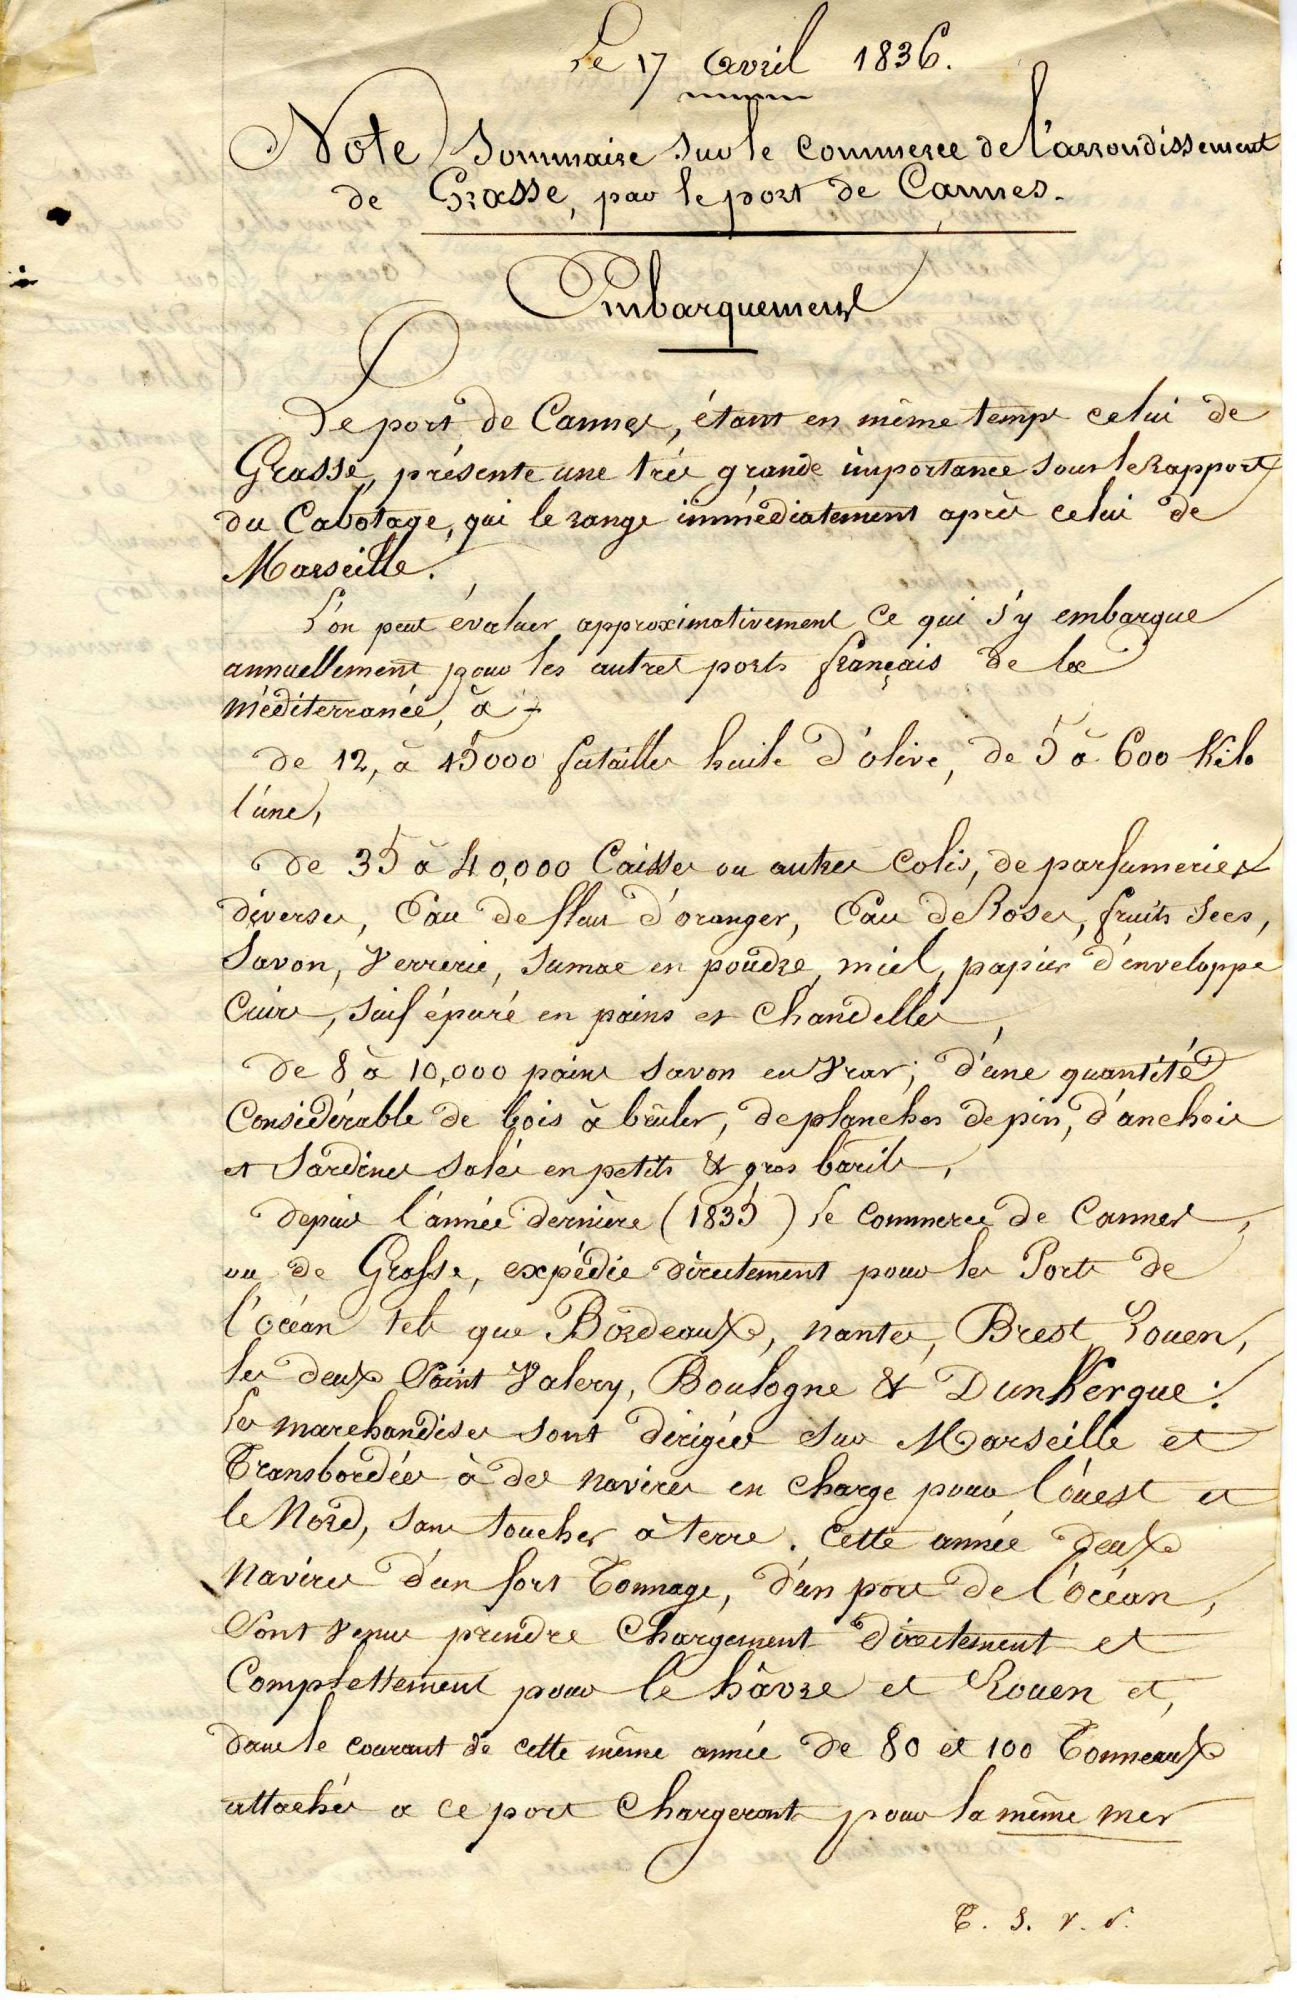 Le 17 avril 1836.
Note Sommaire sur le commerce de l'arrondissement
de Grasse, par le port de Cannes.
Embarquement
Le port de Cannes, étant en même temps celui de
Grasse, présente une très grande importance sous le rapport
du Cabotage, qui le range immédiatement après celui de
Marseille.
L'on peut évaluer approximativement ce qui s'y embarque
annuellement pour les autres ports français de la
méditerranée, à :
de 12, à 15000 futailles huile d'olive, de 5 à 600 Kilo
l'une,
de 35 à 40,000 Caisses ou autres colis, de parfumeries
diverses, Eau de fleur d'oranger, Eau de Roses, fruits secs,
Savon, Verrerie, Sumac en poudre, miel, papier d'enveloppe
Cuirs, suif épuré en pains et Chandelles,
de 8 à 10,000 pains savon en vrac; d'une quantité
Considérable de bois à brûler, de planches de pin, d'anchois
et Sardines salés en petits & gros barils,
depuis l'année dernière (1835) le commerce de Cannes,
ou de Grasse, expédie directement pour les Ports de
l'océan tels que Bordeaux, nantes, Brest, Rouen,
les deux Saint Valery, Boulogne & Dunkerque :
les marchandises sont dirigées sur Marseille et
Transbordées à des navires en charge pour l'ouest et
le Nord, sans toucher à terre. Cette année deux
Navires d'un fort Tonnage, d'un port de l'océan,
Sont venus prendre Chargement directement et
Complettement pour le hâvre et Rouen et,
dans le courant de cette même année de 80 et 100 Tonneaux
attachés a ce port Chargeront pour la même mer
T. S. V. P.